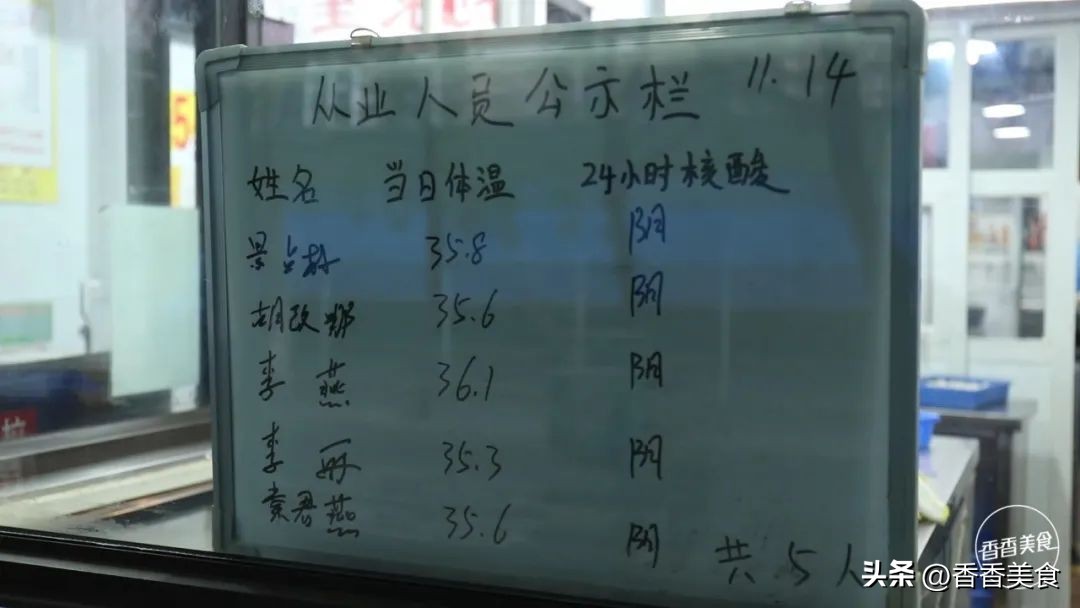 从业人员公示栏 11.14
姓名 当日体温 24小时核酸
景占林 35.8 阴
胡改娜 35.6 阴
李燕 36.1 阴
李丽 35.3 阴
袁君燕 35.6 阴
共5人
香香美食
头条 @香香美食